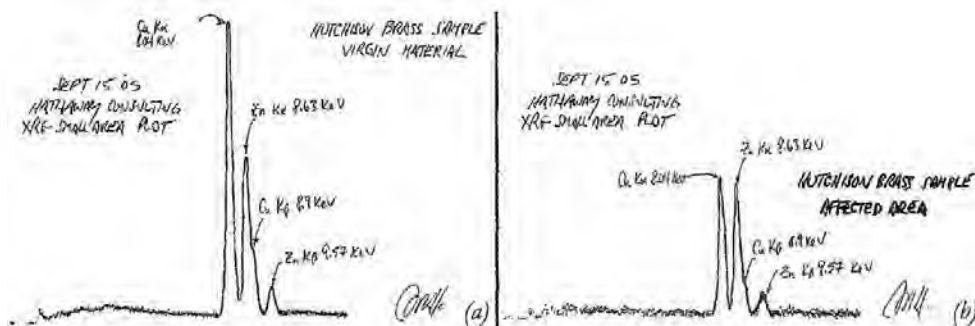 Cu Kα
8.04 KeV
HUTCHISON BRASS SAMPLE
VIRGIN MATERIAL
SEPT 15 05
HATHAWAY CONSULTING
XRF SMALL AREA PLOT
Zn Kα 8.63 KeV
Cu Kβ 8.9 KeV
Zn Kβ 9.57 KeV
(a)
SEPT 15 05
HATHAWAY CONSULTING
XRF SMALL AREA PLOT
Zn Kα 8.63 KeV
Cu Kα 8.04 KeV
HUTCHISON BRASS SAMPLE
AFFECTED AREA
Cu Kβ 8.9 KeV
Zn Kβ 9.57 KeV
(b)